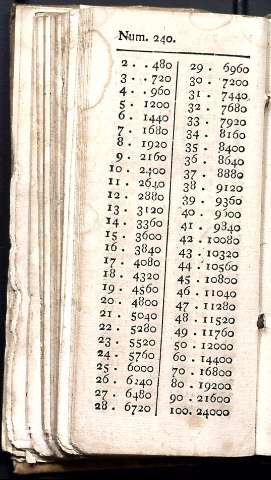 Num. 240.
2 . . 480
3 . . 720
4 . . 960
5 . 1200
6 . 1440
7 . 1680
8 . 1920
9 . 2160
10 . 2400
11 . 2640
12 . 2880
13 . 3120
14 . 3360
15 . 3600
16 . 3840
17 . 4080
18 . 4320
19 . 4560
20 . 4800
21 . 5040
22 . 5280
23 . 5520
24 . 5760
25 . 6000
26 . 6240
27 . 6480
28 . 6720
29 . 6960
30 . 7200
31 . 7440
32 . 7680
33 . 7920
34 . 8160
35 . 8400
36 . 8640
37 . 8880
38 . 9120
39 . 9360
40 . 9600
41 . 9840
42 . 10080
43 . 10320
44 . 10560
45 . 10800
46 . 11040
47 . 11280
48 . 11520
49 . 11760
50 . 12000
60 . 14400
70 . 16800
80 . 19200
90 . 21600
100. 24000